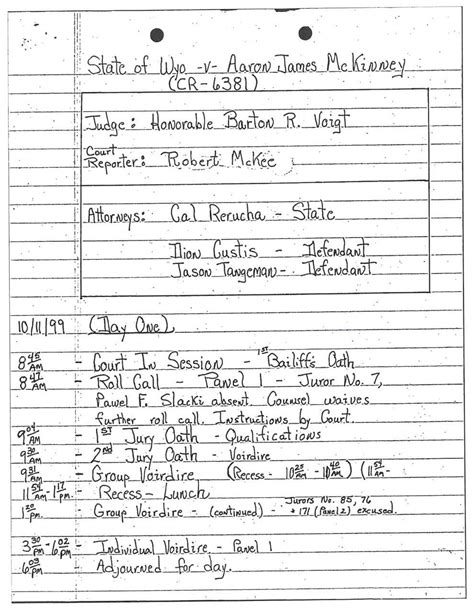 State of Wyo -v- Aaron James McKinney
(CR-6381)
Judge: Honorable Barton R. Voigt
Court
Reporter: Robert McKee
Attorneys: Cal Rerucha - State
Dion Custis - Defendant
Jason Tangeman - Defendant
10/11/99 (Day One)
8:45 AM - Court In Session - 1ST Bailiff's Oath
8:47 AM - Roll Call - Panel 1 - Juror No. 7,
Pawel F. Slacki absent. Counsel waives
further roll call. Instructions by Court.
9:04 AM - 1ST Jury Oath - Qualifications
9:30 AM - 2nd Jury Oath - Voirdire
9:31 AM - Group Voirdire (Recess - 10:25 AM - 10:40 AM) (11:54 AM -
11:54 AM - 1:17 pm. - Recess - Lunch
1:20 pm. - Group Voirdire - (continued) - Jurors No. 85, 76 + 171 (Panel 2) excused.
3:30 pm - 6:02 pm - Individual Voirdire - Panel 1
6:03 pm - Adjourned for day.